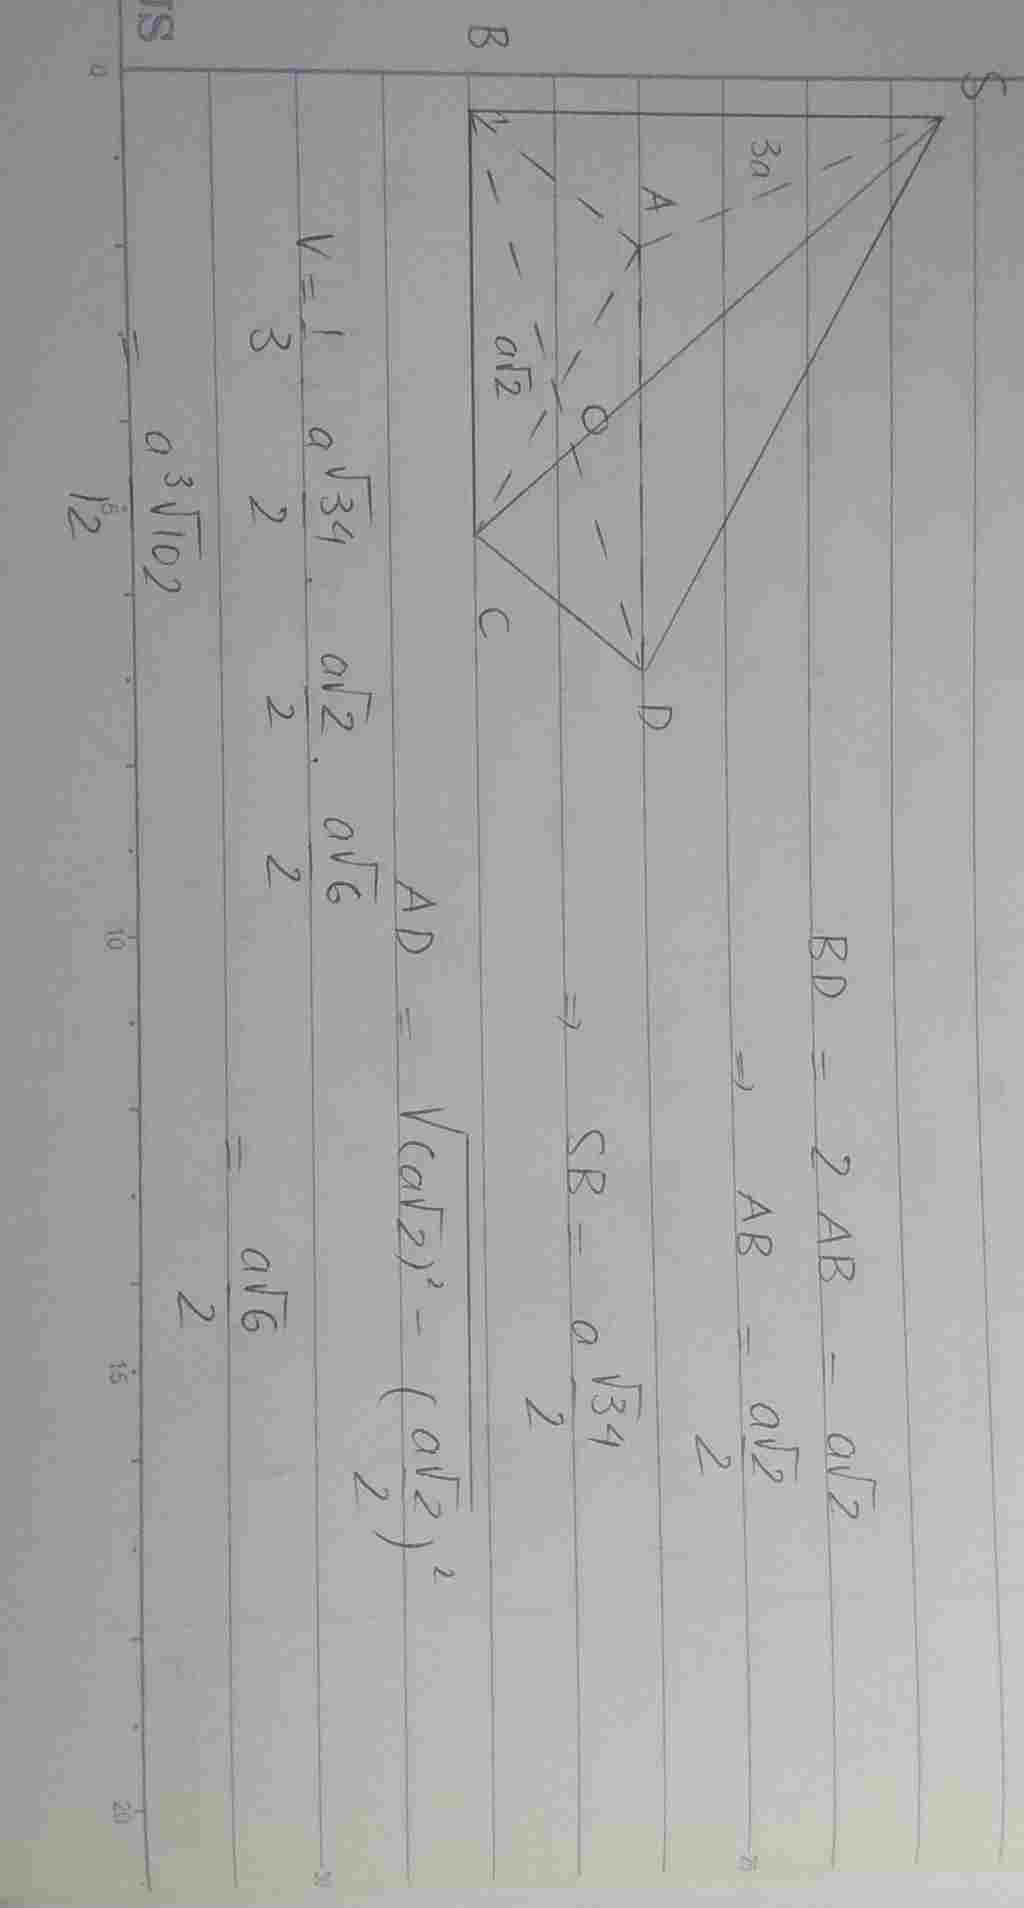 S
3a
A
D
O
a√2
B
C
BD = 2AB = a√2
⇒ AB = a√2/2
⇒ SB = a√34/2
AD = √((a√2)² - (a√2/2)²)
= a√6/2
V = 1/3 . a√34/2 . a√2/2 . a√6/2
= a³√102/12
0 5 10 15 20
25
30